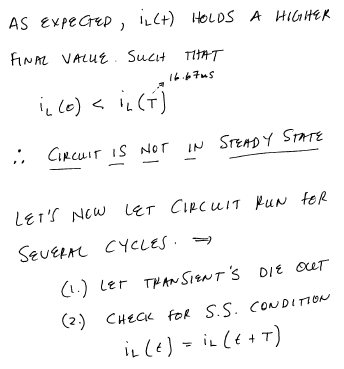 AS EXPECTED, iL(t) HOLDS A HIGHER
FINAL VALUE. SUCH THAT
16.67ms
iL(0) < iL(T)
∴ CIRCUIT IS NOT IN STEADY STATE
LET'S NOW LET CIRCUIT RUN FOR
SEVERAL CYCLES. ⇒
(1.) LET TRANSIENT'S DIE OUT
(2.) CHECK FOR S.S. CONDITION
iL(t) = iL(t+T)